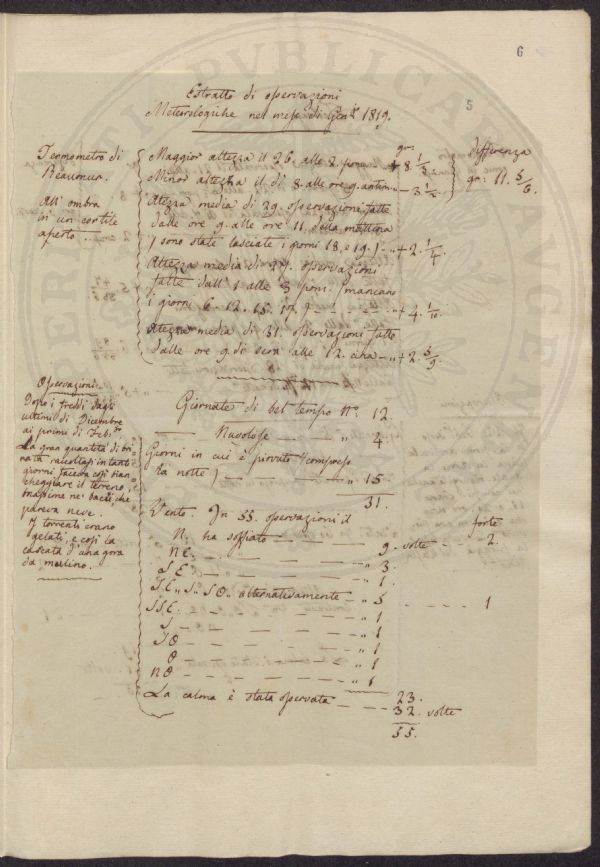 6
5
Estratto di osservazioni
Meteorologiche nel mese di Gen.º 1819.
Termometro di
Reaumur.
All' ombra
in un cortile
aperto
gr.
Maggior altezza il 26. alle 2. pom. + 8. 1/3
Minor altezza il dì 8. alle ore 9. antim. – 3. 1/2
differenza
gr. 11. 5/6.
Altezza media di 29. osservazioni fatte
dalle ore 9. alle ore 11. della mattina
(sono state lasciate i giorni 18. e 19.) – „ + 2. 1/4.
Altezza media di 27. osservazioni
fatte dall' 1 alle 3 pom. (mancano
i giorni 6. 12. 15. – – – – „ + 4. 1/10.
Altezza media di 31. osservazioni fatte
dalle ore 9. di sera alle 12. circa – „ + 2. 5/9.
Osservazioni.
Dopo i freddi dagli
ultimi di Dicembre
ai primi di Feb.º
La gran quantità di bri-
nata raccoltasi in tanti
giorni faceva così bian-
cheggiare il terreno,
massime ne' bacii, che
pareva neve.
I torrenti erano
gelati, e così la
cascata d'una gora
da mulino.
Giornate di bel tempo N.º 12.
—— Nuvolose – – – „ 4.
Giorni in cui è piovuto (compreso
la notte) – – – – – „ 15.
31.
Vento. In 55. osservazioni il
N. ha soffiato – – – – 9. volte – – forte 2.
NE. – – – – – „ 3.
SE. – – – – – „ 1.
SE„ S„ SO„ alternativamente – „ 5 – – – – 1
SSE. – – – – – „ 1
S – – – – – „ 1
SO – – – – – „ 1
O – – – – – „ 1
NO – – – – – „ 1
23.
La calma è stata osservata – – – 32. volte
55.